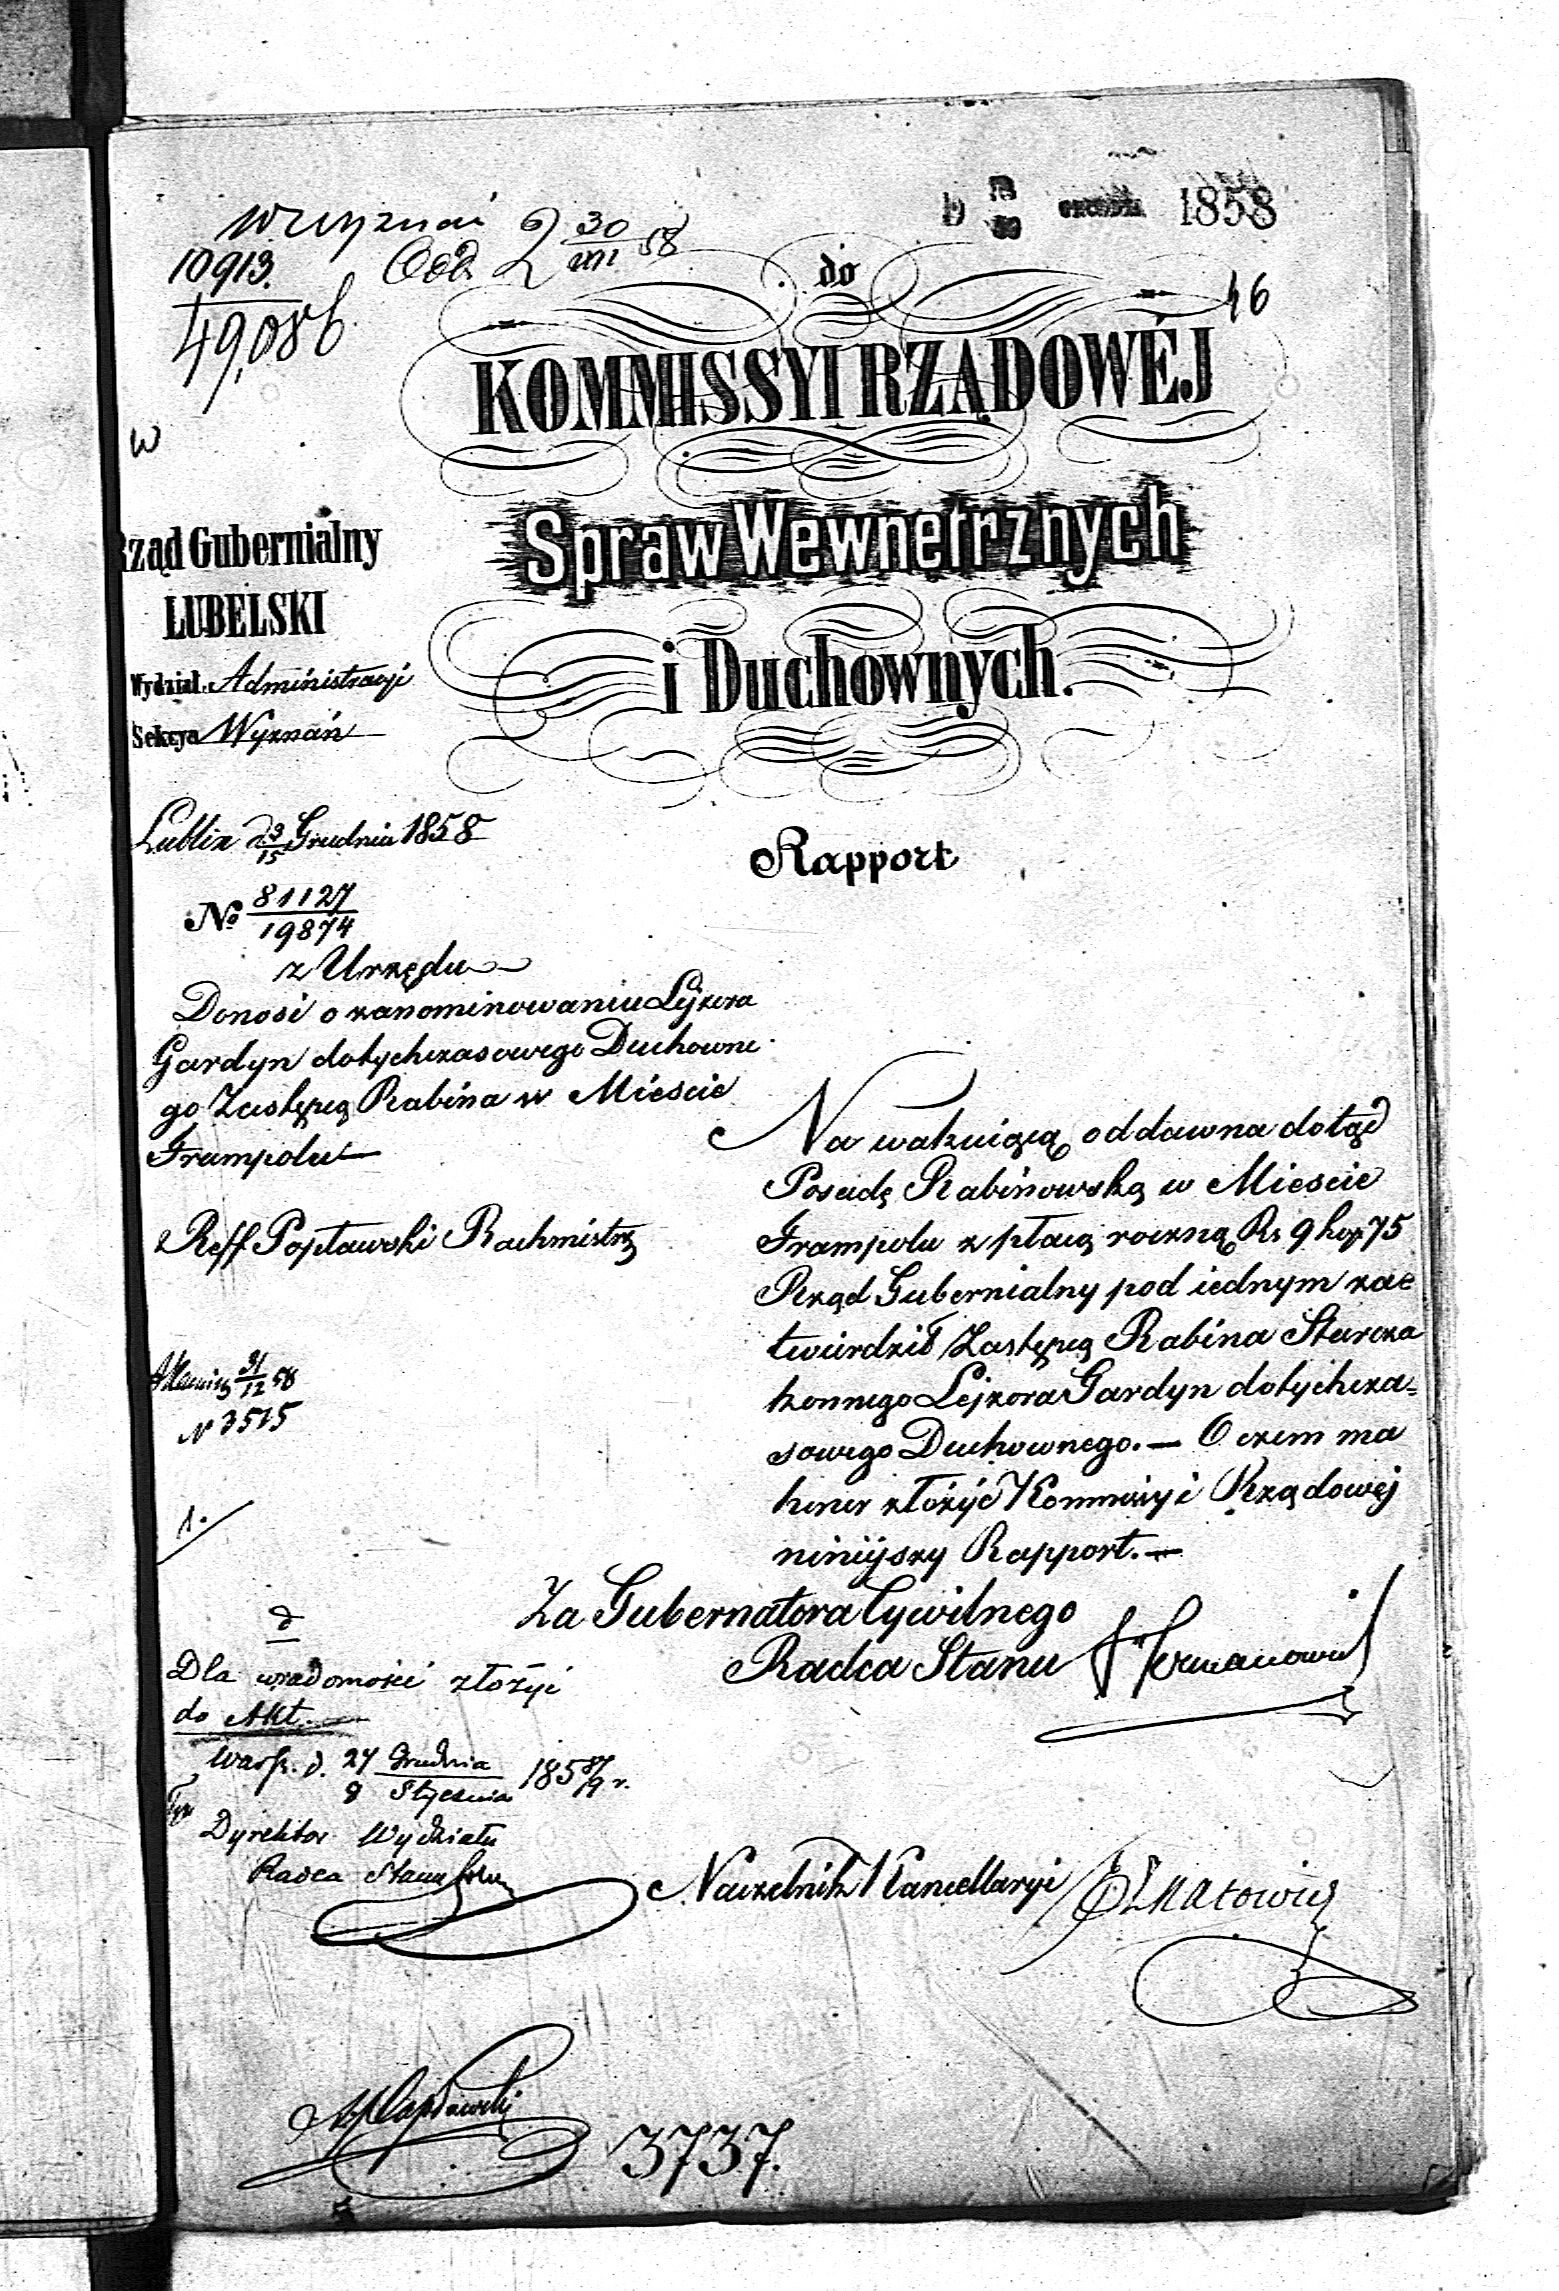 Wyznań
10913.
49,086.
Odd. 2 30/XII 58
18/30 1858
46
w
do
KOMMISSYI RZĄDOWÉJ
Spraw Wewnetrznych
i Duchownych.
Rząd Gubernialny
LUBELSKI
Wydział Administracyi
Sekcya Wyznań
Lublin d. 3/15 Grudnia 1858
Rapport
No 81127/19874
z Urzędu
Donosi o zanominowaniu Lejzora
Gardyn dotychczasowego Duchowne
go Zastępcą Rabina w Mieście
Frampolu
Reff Popławski Rachmistrz
31/12 58
N 3515
1.
Na wakuiącą oddawna dotąd
Posadę Rabinowską w Mieście
Frampolu z płacą roczną Rs 9 kop 75
Rząd Gubernialny pod iednym zae
twierdził Zastępcą Rabina Staroza
konnego Lejzora Gardyn dotychcza=
sowego Duchownego.— O czem ma
honor złożyć Kommissyi Rządowéj
niniéjszy Rapport.—
Za Gubernatora Cywilnego
Radca Stanu
d
Dla wiadomości złożyć
do Akt.
Warsz. d. 27 Grudnia / 8 Stycznia 1858/9 r.
Dyrektor Wydziału
Radca Stanu
Naczelnik Kancellaryi
3737.